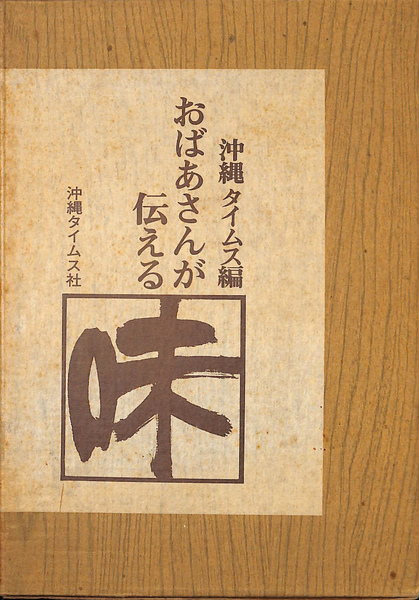 沖縄タイムス編
おばあさんが
伝える
味
沖縄タイムス社